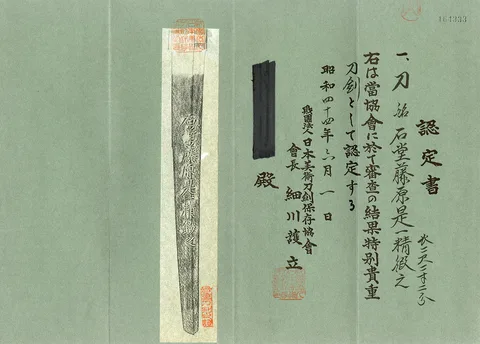 認定書
一、刀 銘 石堂藤原是一精鍛之
長二尺二寸二分
右は當協會に於て審査の結果特別貴重
刀剣として認定する
昭和四十四年六月一日
財團法人日本美術刀剣保存協會
會長 細川護立
殿